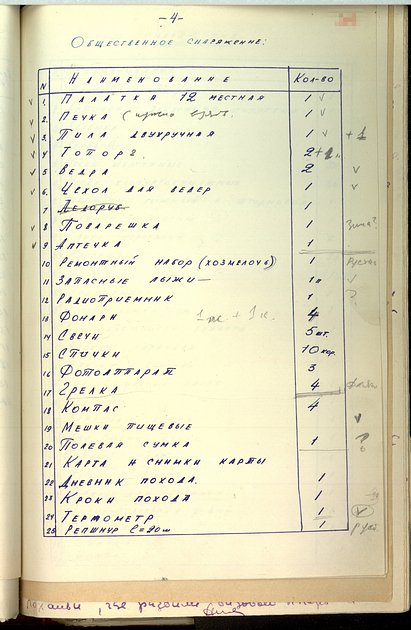 -4-
Общественное снаряжение:
N Наименование Кол-во
v 1. Палатка 12 местная 1 v
v 2. Печка 1 v
v 3. Пила двухручная 1 v +1
v 4 Топор 2+1
v 5 Ведра 2 v
v 6. Чехол для ведер 1 v
7 Ледоруб 1
v 8 Поварешка 1
v 9 Аптечка 1
10 Ремонтный набор (хозмелочь) 1
11 Запасные лыжи — 1п v
12 Радиоприемник 1 ?
13 Фонари 4
14 Свечи 5 шт.
15 Спички 10 кор.
16 Фотоаппарат 3
17 Грелка 4
18 Компас 4
19 Мешки пищевые v
20 Полевая сумка 1 ?
21 Карта и снимки карты
22 Дневник похода. 1
23 Кроки похода 1
24 Термометр 1 v
25 Репшнур ℓ=20м 1